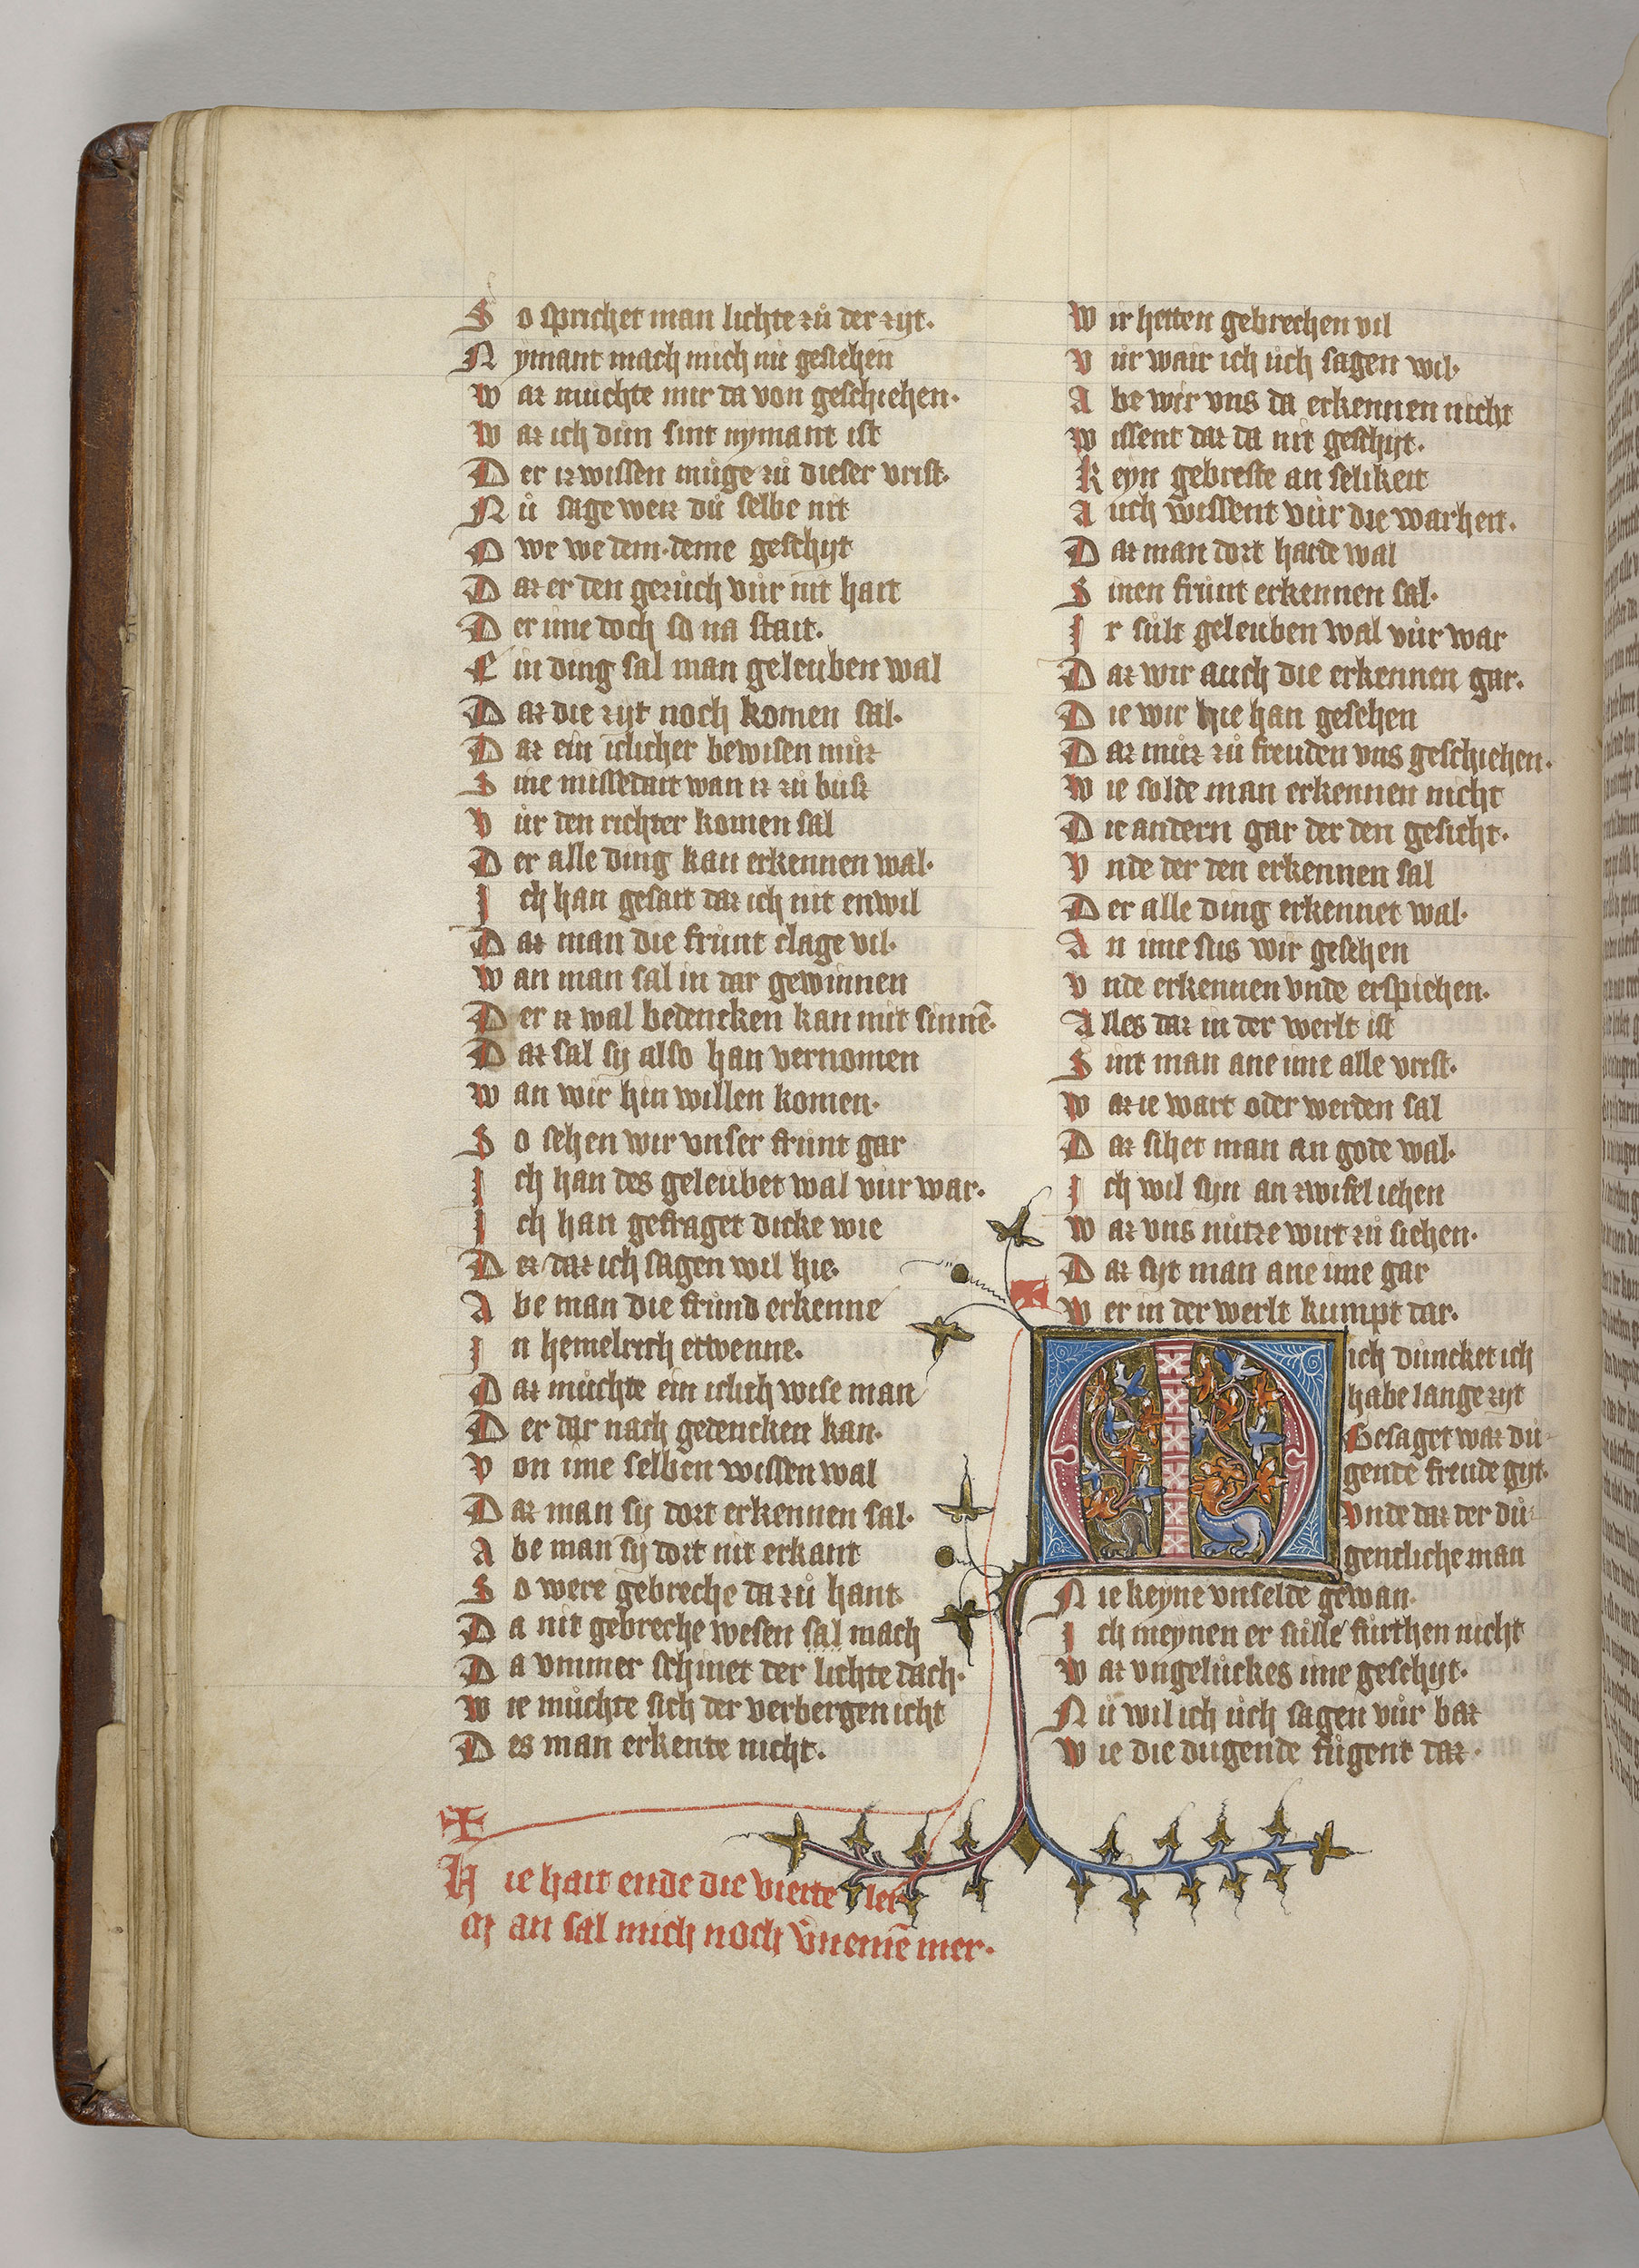 So sprichet man lichte zuͦ der zijt.
Nymant mach mich nit gestehen
Waz muchte mir da von geschiehen.
Waz ich duͦn sint nymant ist
Der iz wissen muͤge zuͦ dieser vrist.
Nuͦ sage weiz duͦ selbe nit
O we we dem. deme geschijt
Daz er den gezuch vuͤr nit hait
Der ime doch so na stait.
Ein ding sal man geleuben wal
Daz die zijt noch komen sal.
Daz ein iclicher bewisen muͦz
Sine missedait wan iz zuͦ buͦz
Vuͤr den richter komen sal
Der alle ding kan erkennen wal.
Ich han gesait daz ich nit enwil
Daz man die frunt clage vil.
Wan man sal in daz gewinnen
Der iz wal bedencken kan mit sinnē.
Daz sal sij also han vernomen
Wan wir hin willen komen.
So sehen wir vnser frunt gar
Ich han des geleubet wal vuͤr war.
Ich han gefraget dicke wie
Dez daz ich sagen wil hie.
Abe man die frund erkenne
In hemelrich etwenne.
Daz muͤchte ein iclich wise man
Der dar nach gedencken kan.
Von ime selben wissen wal
Daz man sij dort erkennen sal.
Abe man sij dort nit erkant
So were gebreche da zuͦ hant.
Da nit gebreche wesen sal mach
Da vmmer schinet der lichte dach.
Wie muͤchte sich der verbergen icht
Des man erkente nicht.
Hie hait ende die vierte ler
Man sal mich noch v̄nemē mer.
Wir hetten gebrechen vil
Vuͤr wair ich uͤch sagen wil.
Abe wir vns da erkennen nicht
Wissent daz da nit geschijt.
Keyn gebreste an selikeit
Auch wissent vuͤr die warheit.
Daz man dort harde wal
Sinen fruͤnt erkennen sal.
Ir suͤlt geleuben wal vuͤr war
Daz wir auch die erkennen gar.
Die wir hie han gesehen
Daz muͦz zuͦ freuden vns geschiehen.
Wie solde man erkennen nicht
Die andern gar der den gesicht.
Vnde der den erkennen sal
Der alle ding erkennet wal.
An ime sus wir gesehen
Vnde erkennen vnde erspiehen.
Alles daz in der werlt ist
Siht man ane ime alle vrist.
Waz ie wart oder werden sal
Daz sihet man an gode wal.
Ich wil sijn an zwifel iehen
Waz vns nutze wirt zuͦ siehen.
Daz sijt man ane ime gar
Wer in der werlt kumpt dar.
Mich duncket ich
habe lange zijt
Gesaget waz du-
gende freude gijt.
Vnde daz der duͦ-
gentliche man
Nie keyne vnselde gewan.
Ich meynen er sulle furthen nicht
Waz vngeluckes ime geschijt.
Nuͦ wil ich uͤch sagen vuͤr baz
Wie die dugende fuͤgent daz.